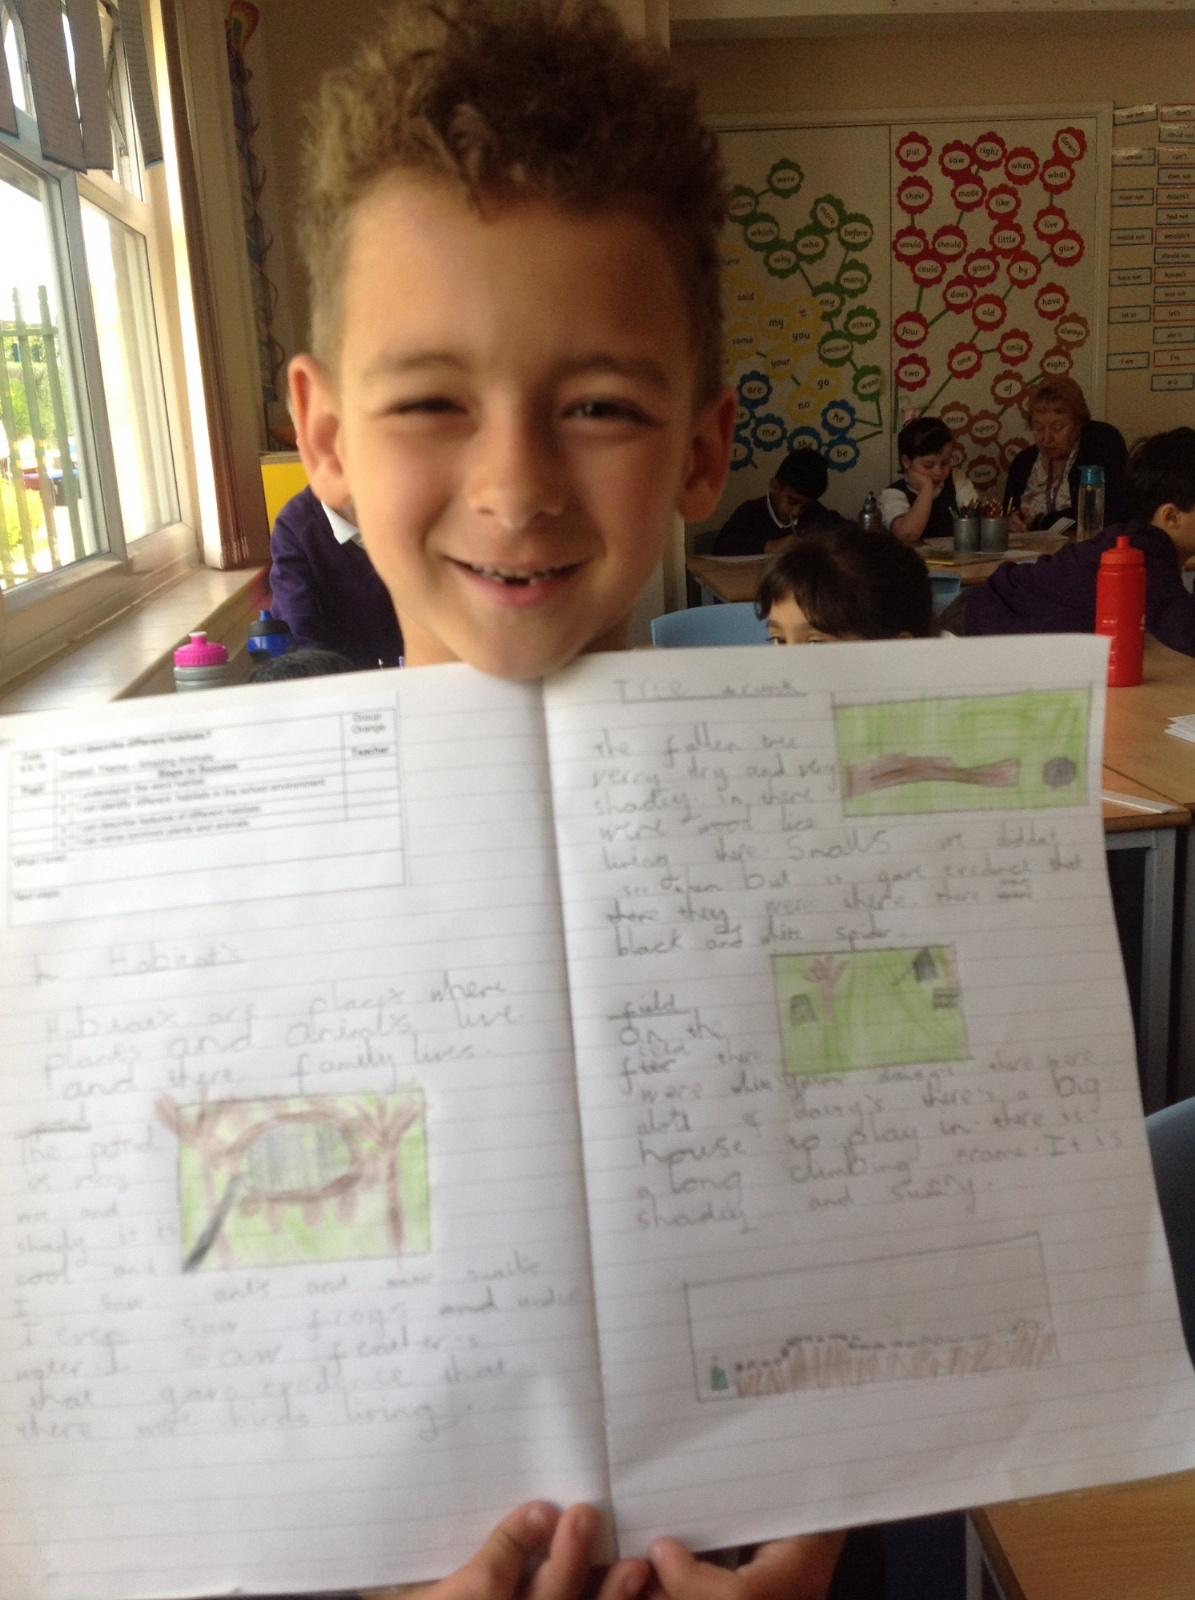 Can I describe different habitats?
Group:
Orange
Context: Theme - Amazing Animals
Steps to Success
Teacher
Pupil
I understand the word habitat
I can identify different habitats in the school environment
I can describe features of different habitats
I can name common plants and animals
Next steps
Habitats
Habitats are plays where
plants and animls live.
and there family lives.
The pond
is very
wet and
shady it is
cool and
I saw ants and more
I even saw frogs and under
water I saw feathers
that gave evedence that
there were birds living.
Tree trunk
the fallen tree
verry dry and very
shadey in there
were wood lice
living there Snalls we diddnt
see them but it gave evedence that
there they were there. there
black and white spider.
field
On the
there
were white daisy's there were
alots of daisy's there's a big
house to play in there is
a long climbing frame. It is
shadey and sunny.
were
which
who
why
more
before
many
any
other
because
want
said
my
you
some
your
go
no
are
he
me
she
be
I
put
saw
right
when
down
what
their
made
like
live
would
should
little
give
could
goes
by
does
old
have
four
always
one
only
eight
two
of
once
upon